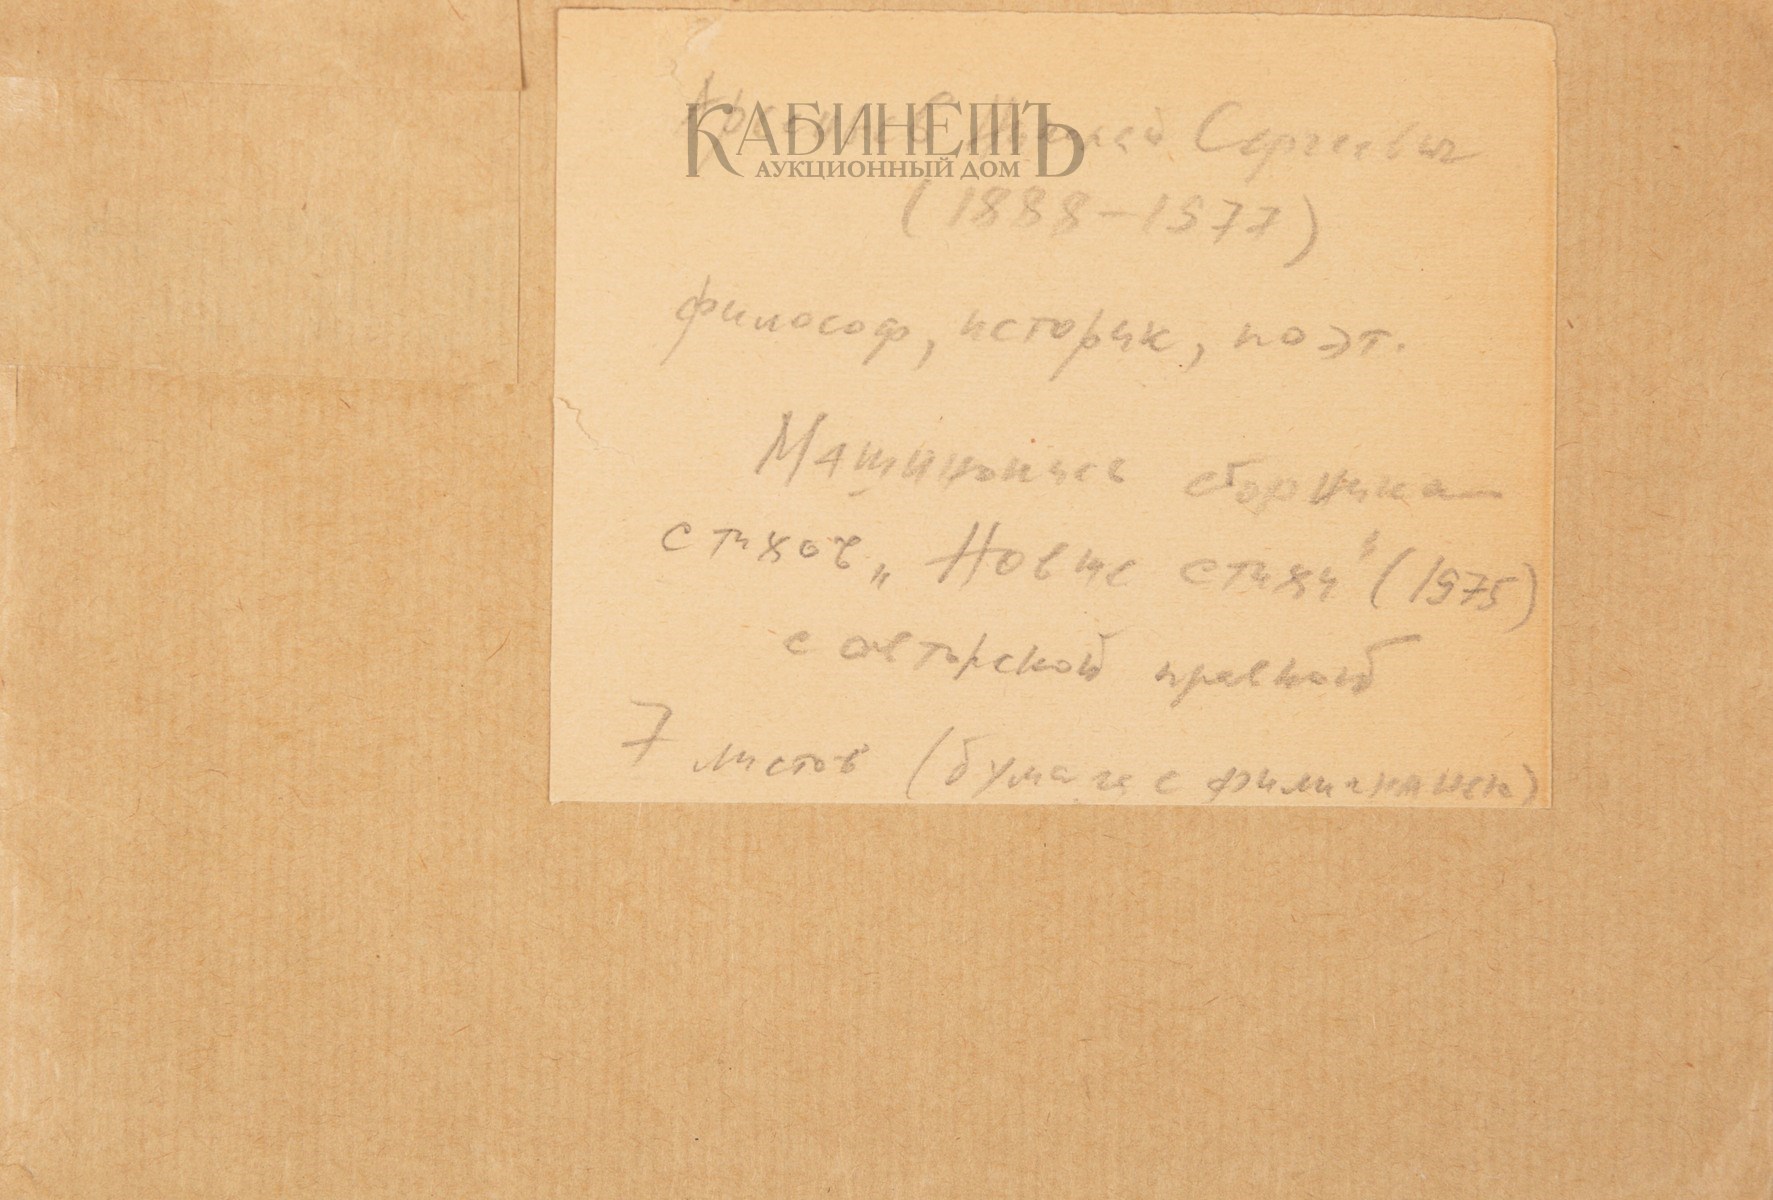 КАБИНЕТЪ
АУКЦИОННЫЙ ДОМ
Арсеньев Николай Сергеевич
(1888-1977)
философ, историк, поэт.
Машинопись сборника
стихов „Новые стихи" (1975)
с авторской правкой
7 листов (бумага с филигранями)